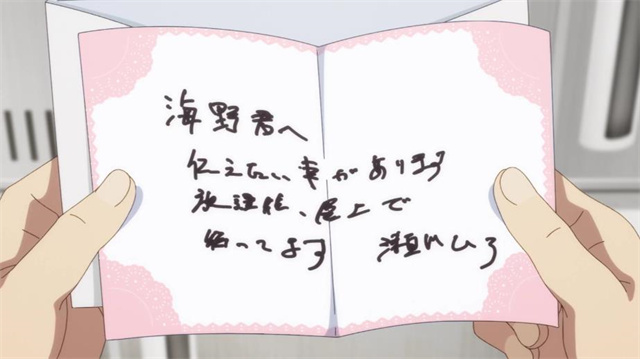 海野君へ
伝えたい事があります
放課後、屋上で
待ってます 瀬川ひろ